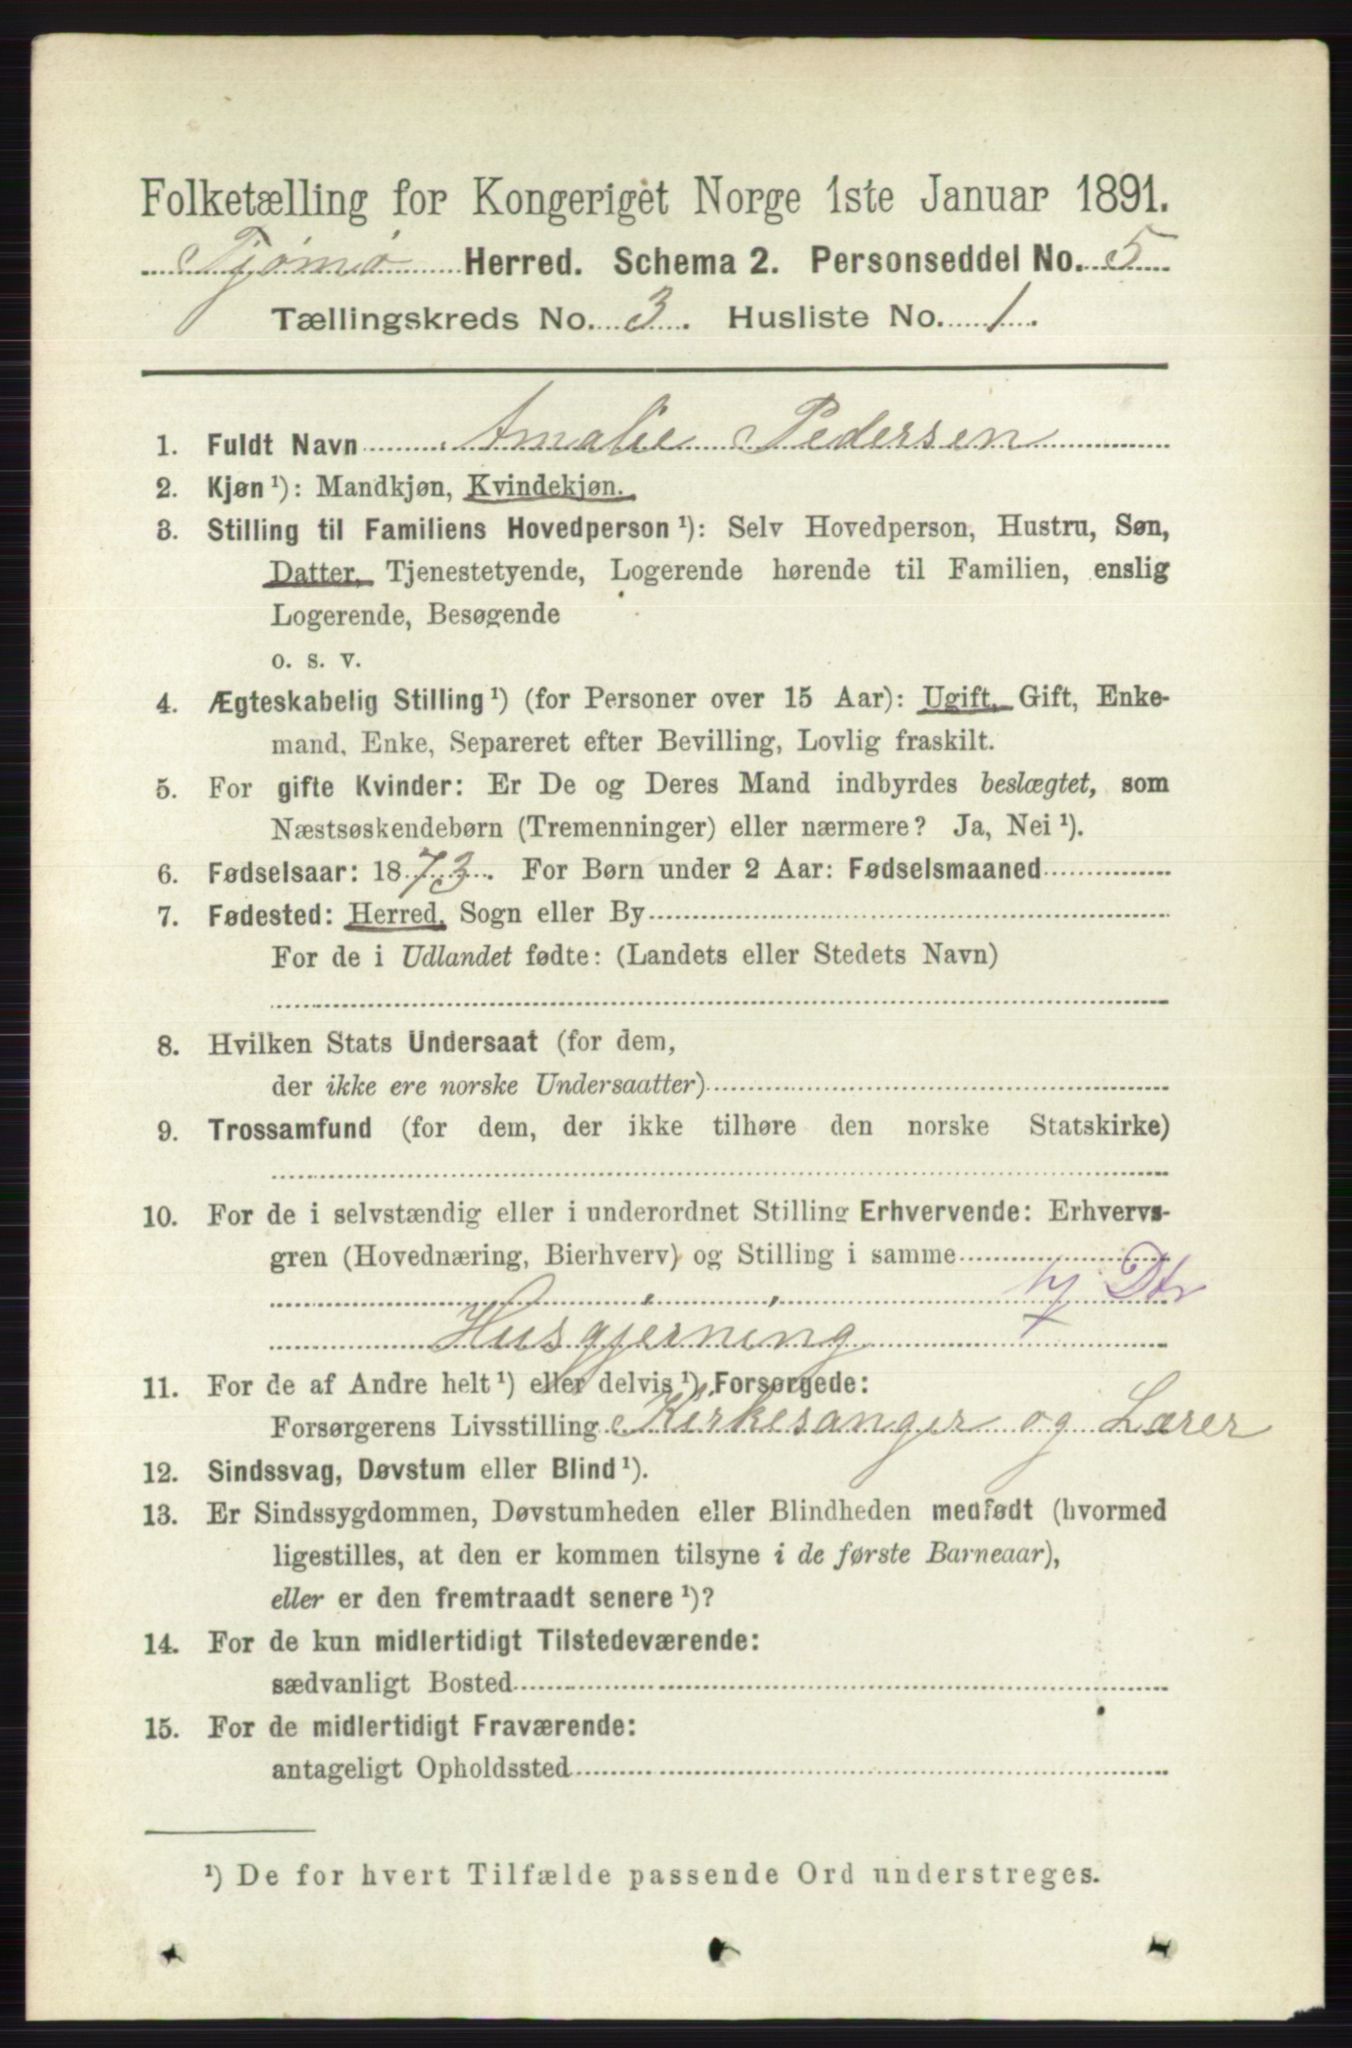 Folketælling for Kongeriget Norge 1ste Januar 1891.
Tjømø Herred. Schema 2. Personseddel No. 5
Tællingskreds No. 3. Husliste No. 1.
1. Fuldt Navn Amalie Pedersen
2. Kjøn ¹): Mandkjøn, Kvindekjøn.
3. Stilling til Familiens Hovedperson ¹): Selv Hovedperson, Hustru, Søn,
Datter, Tjenestetyende, Logerende hørende til Familien, enslig
Logerende, Besøgende
o. s. v.
4. Ægteskabelig Stilling ¹) (for Personer over 15 Aar): Ugift, Gift, Enke-
mand, Enke, Separeret efter Bevilling, Lovlig fraskilt.
5. For gifte Kvinder: Er De og Deres Mand indbyrdes beslægtet, som
Næstsøskendebørn (Tremenninger) eller nærmere? Ja, Nei ¹).
6. Fødselsaar: 1873. For Børn under 2 Aar: Fødselsmaaned
7. Fødested: Herred, Sogn eller By
For de i Udlandet fødte: (Landets eller Stedets Navn)
8. Hvilken Stats Undersaat (for dem,
der ikke ere norske Undersaatter)
9. Trossamfund (for dem, der ikke tilhøre den norske Statskirke)
10. For de i selvstændig eller i underordnet Stilling Erhvervende: Erhvervs-
gren (Hovednæring, Bierhverv) og Stilling i samme
Dtr
Husgjerning
11. For de af Andre helt ¹) eller delvis ¹) Forsørgede:
Forsørgerens Livsstilling Kirkesanger og Lærer
12. Sindssvag, Døvstum eller Blind ¹).
13. Er Sindssygdommen, Døvstumheden eller Blindheden medfødt (hvormed
ligestilles, at den er kommen tilsyne i de første Barneaar),
eller er den fremtraadt senere ¹)?
14. For de kun midlertidigt Tilstedeværende:
sædvanligt Bosted
15. For de midlertidigt Fraværende:
antageligt Opholdssted
¹) De for hvert Tilfælde passende Ord understreges.